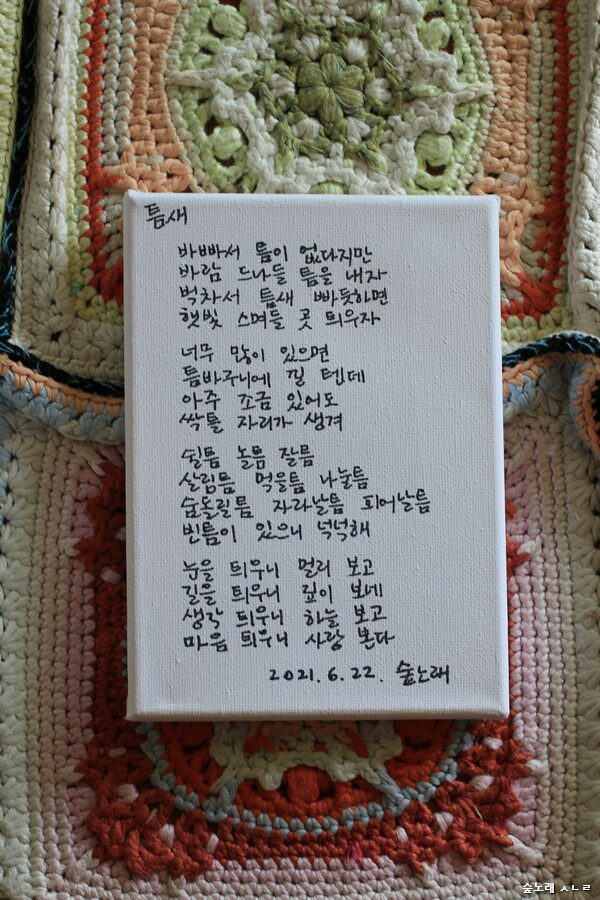 틈새
바빠서 틈이 없다지만
바람 드나들 틈을 내자
벅차서 틈새 빠듯하면
햇빛 스며들 곳 틔우자
너무 많이 있으면
틈바구니에 낄 텐데
아주 조금 있어도
싹틀 자리가 생겨
쉴틈 놀틈 잘틈
살림틈 먹을틈 나눌틈
숨돌릴틈 자라날틈 피어날틈
빈틈이 있으니 넉넉해
눈을 틔우니 멀리 보고
길을 틔우니 깊이 보네
생각 틔우니 하늘 보고
마음 틔우니 사랑 본다
2021.6.22. 숲노래
숲노래 ㅅㄴㄹ